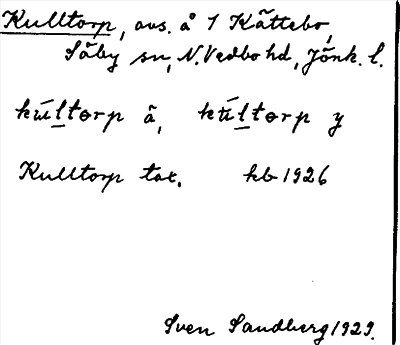 Kulltorp, avs. å 1 Kättebo,
Säby sn, N. Vedbo hd, Jönk. l.
kúltorp ä, kúltorp y
Kulltorp tax. hb 1926
Sven Sandberg 1929.